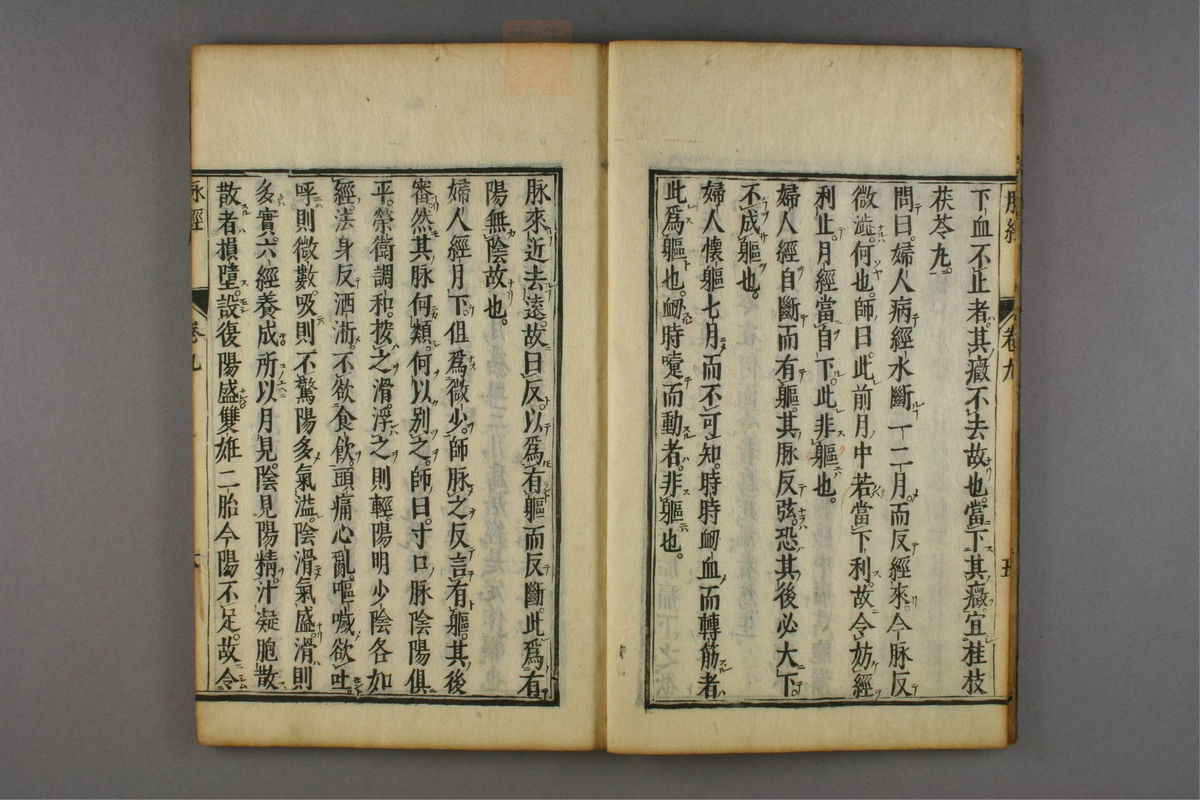 脉經
卷九
五
下血不止者。其癥不去故也。當下其癥。宜桂枝
茯苓丸。
問曰。婦人病經水斷一二月。而反經來。今脉反
微澁。何也。師曰。此前月中若當下利。故令妨經
利止。月經當自下。此非軀也。
婦人經自斷而有軀。其脉反弦。恐其後必大下
不成軀也。
婦人懷軀七月而不可知。時時衂血而轉筋者
此爲軀也。衂時嚏而動者。非軀也。
脉來近去遠。故曰反。以爲有軀而反斷。此爲有
陽無陰故也。
婦人經月下。但爲微少。師脉之反言有軀。其後
審然。其脉何類。何以别之。師曰。寸口脉陰陽俱
平。榮衛調和。按之滑。浮之則輕。陽明少陰各如
經法。身反洒淅。不欲食飮。頭痛心亂。嘔噦欲吐。
呼則微數。吸則不驚。陽多氣溢。陰滑氣盛。滑則
多實。六經養成。所以月見。陰見陽精。汁凝胞散
散者損墮。設復陽盛雙妊二胎。今陽不足。故令
脉經
卷九
六